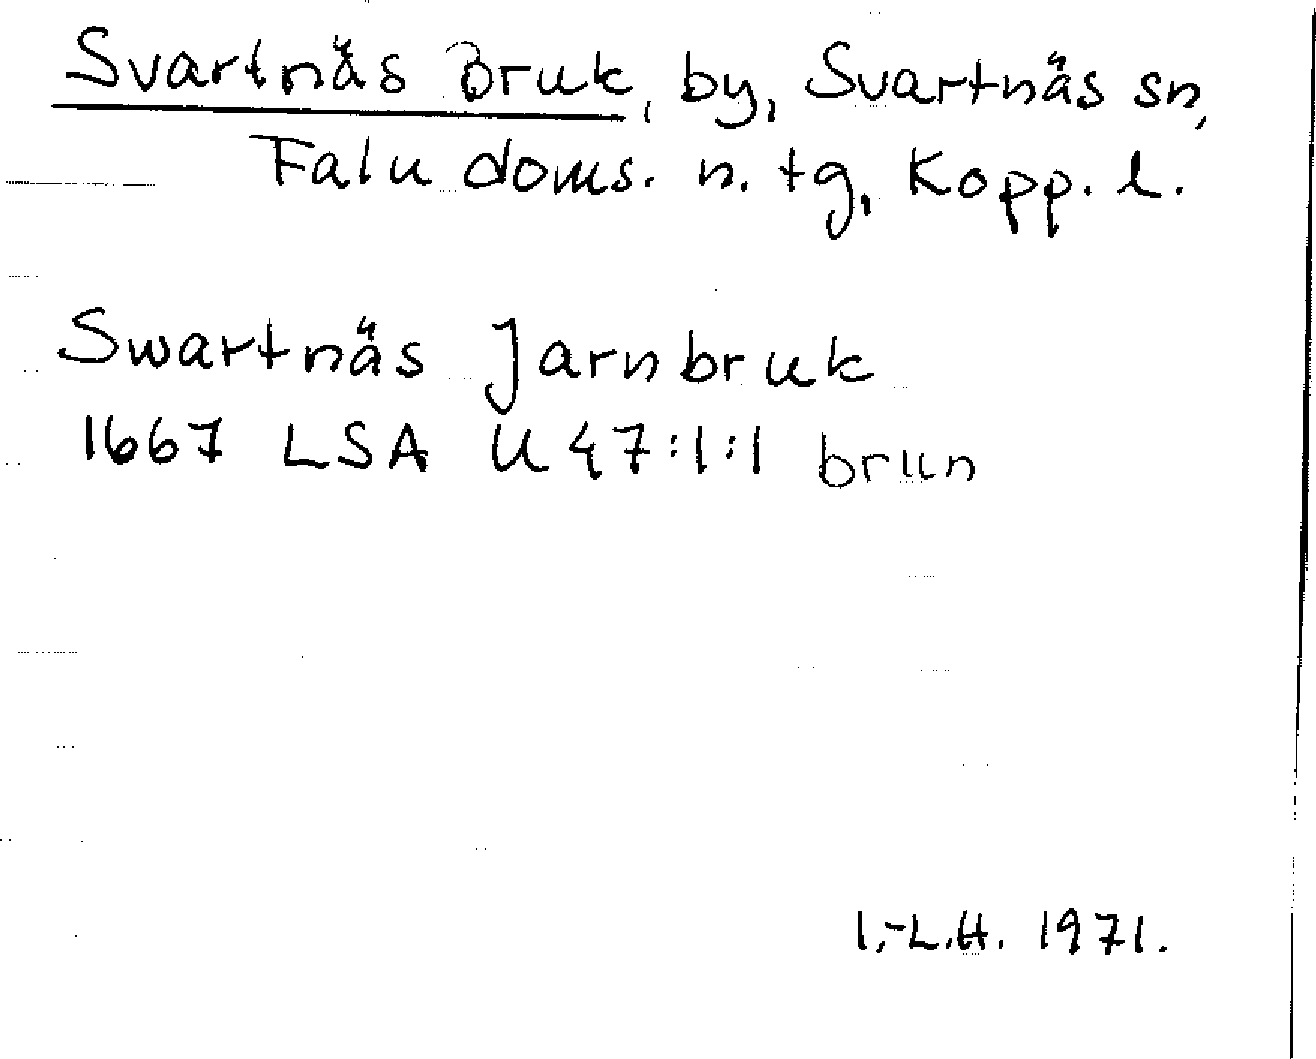 Svartnäs Bruk, by, Svartnäs sn,
Falu doms. n. tg, Kopp. l.
Swartnäs Jarnbruk
1667 LSA U 47:1:1 brun
I.-L.H. 1971.